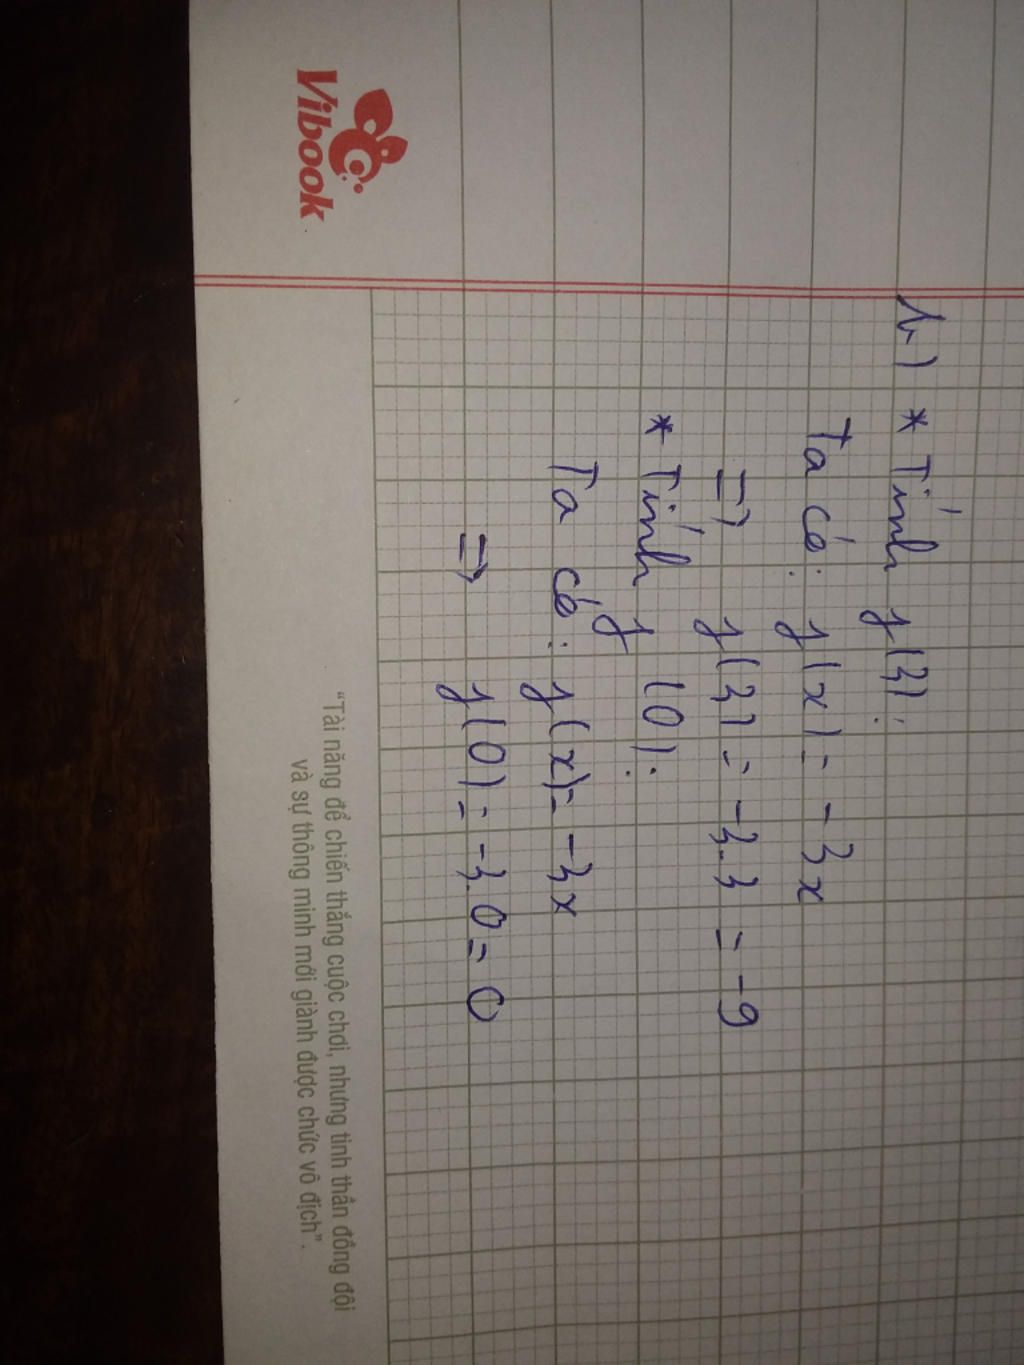 b) * Tính f(3):
Ta có: f(x) = -3x
=> f(3) = -3.3 = -9
* Tính f(0):
Ta có: f(x) = -3x
=> f(0) = -3.0 = 0
"Tài năng để chiến thắng cuộc chơi, nhưng tinh thần đồng đội
và sự thông minh mới giành được chức vô địch".
Vibook